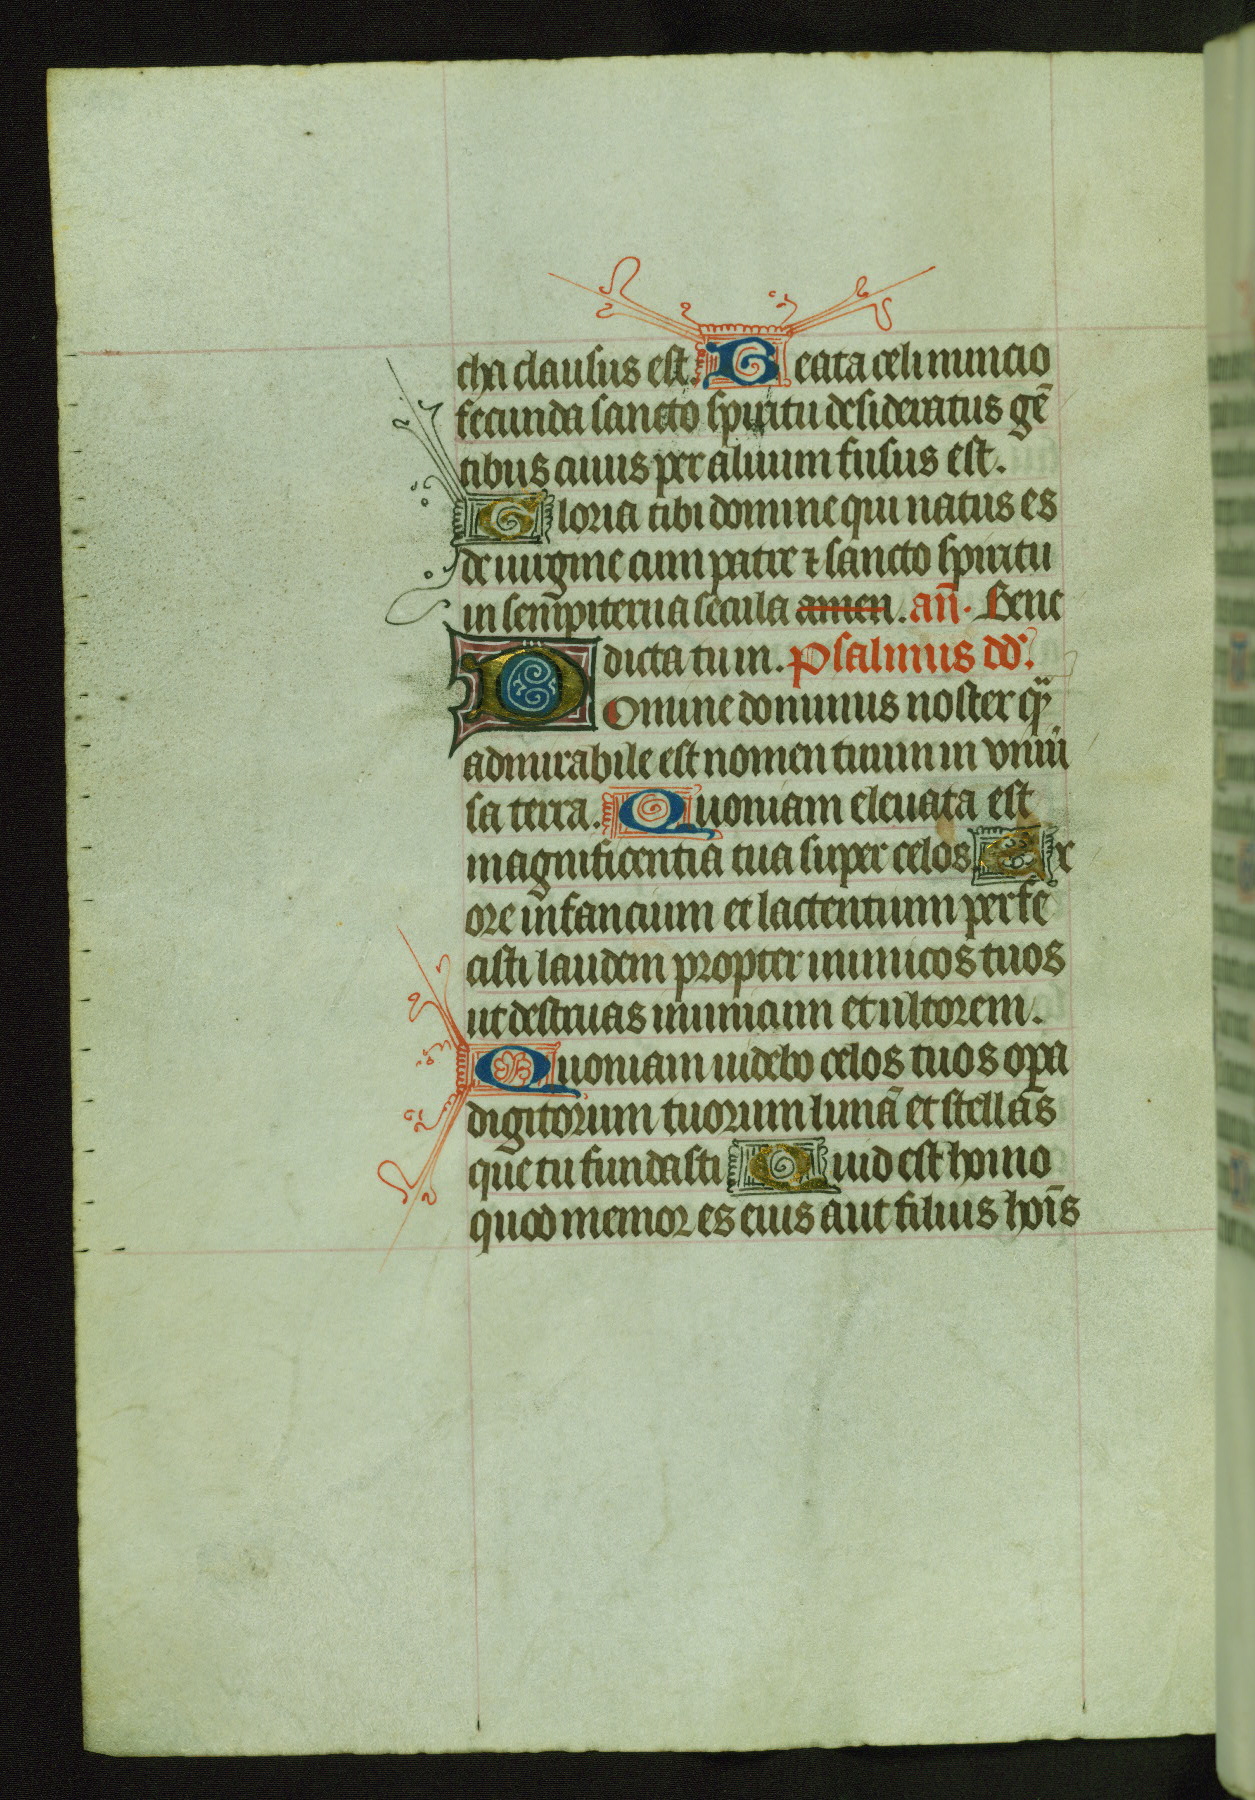 cha clausus est. Beata celi nuncio
fecunda sancto spiritu desideratus gē
tibus cuius per aluum fusus est.
Gloria tibi domine qui natus es
de uirgine cum patre ⁊ sancto spiritu
in sempiterna secula amen. añ. Bene
dicta tu in. Psalmus dd̄.
Domine dominus noster q̄
admirabile est nomen tuum in vniū
sa terra. Quoniam eleuata est
magnificentia tua super celos. Ex
ore infancium et lactentium perfe
cisti laudem propter inimicos tuos
ut destruas inimicum et ultorem.
Quoniam uidebo celos tuos opa
digitorum tuorum lunā et stellas
que tu fundasti Quid est homo
quod memor es eius aut filius hoīs